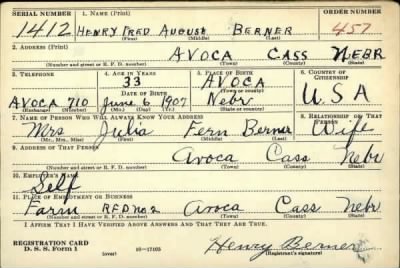 SERIAL NUMBER 1. NAME (Print) ORDER NUMBER
1412 HENRY FRED AUGUST BERNER 457
(First) (Middle) (Last)
2. ADDRESS (Print)
AVOCA CASS NEBR
(Number and street or R. F. D. number) (Town) (County) (State)
3. TELEPHONE 4. AGE IN YEARS 5. PLACE OF BIRTH 6. COUNTRY OF CITIZENSHIP
33 AVOCA
DATE OF BIRTH (Town or county)
AVOCA 710 June 6 1907 Nebr U.S A
(Exchange) (Number) (Mo.) (Day) (Yr.) (State or country)
7. NAME OF PERSON WHO WILL ALWAYS KNOW YOUR ADDRESS 8. RELATIONSHIP OF THAT PERSON
Mrs Julia Fern Berner Wife
(Mr., Mrs., Miss) (First) (Middle) (Last)
9. ADDRESS OF THAT PERSON
Avoca Cass Nebr
(Number and street or R. F. D. number) (Town) (County) (State)
10. EMPLOYER'S NAME
Self
11. PLACE OF EMPLOYMENT OR BUSINESS
Farm RFD no 2 Avoca Cass Nebr
(Number and street or R. F. D. number) (Town) (County) (State)
I AFFIRM THAT I HAVE VERIFIED ABOVE ANSWERS AND THAT THEY ARE TRUE.
REGISTRATION CARD
D. S. S. Form 1 (over) 16-17105 Henry Berner
(Registrant's signature)